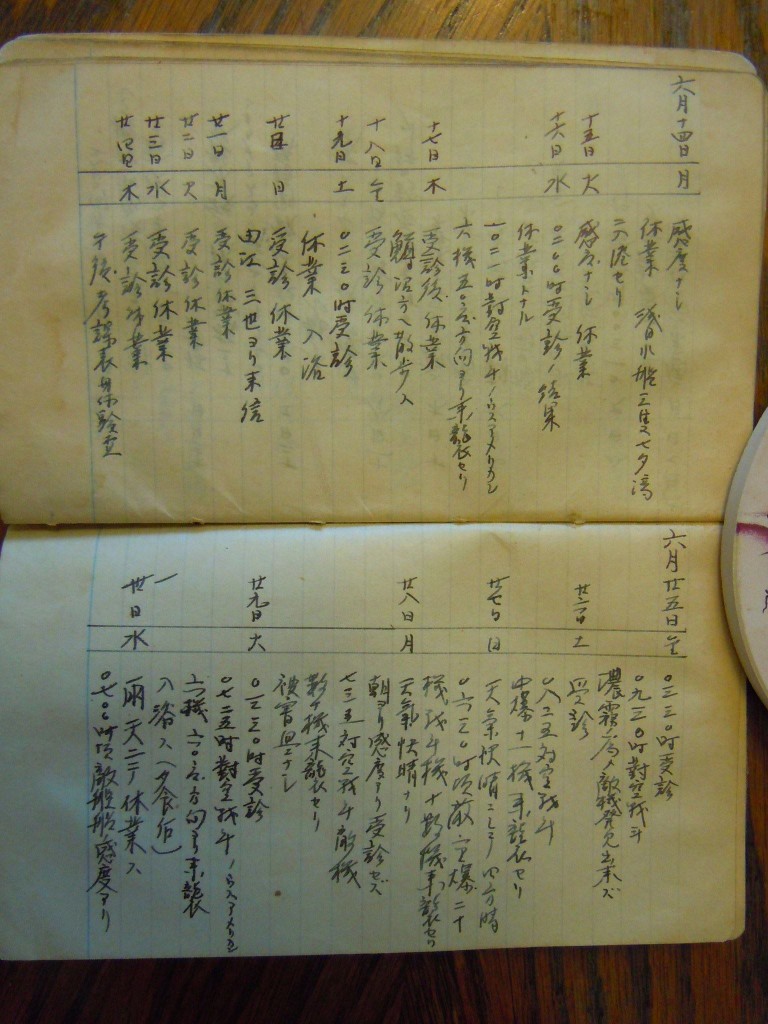 六月十四日 月
感度ナシ
休業
入港セリ
十五日 火
感度ナシ 休業
十六日 水
〇二〇〇時受診ノ結果
休業トナル
一〇二一時對空戦斗
六機五〇度方向ヨリ来襲セリ
十七日 木
受診後休業
方へ散歩ス
十八日 金
受診休業
十九日 土
〇二三〇時受診
休業 入浴
廿日 日
受診休業
三世ヨリ来信
廿一日 月
受診休業
廿二日 火
受診休業
廿三日 水
受診休業
廿四日 木
受診休業
午後考課表身体験査
六月廿五日 金
〇三三〇時受診
〇九三〇時對空戦斗
濃霧ノ為メ敵機発見出来ズ
廿六日 土
受診
〇八二五対空戦斗
中爆十一機来襲セリ
廿七日 日
天氣快晴ニシテ
〇六三〇時頃敵
機戦斗機十数機来襲セリ
廿八日 月
天氣快晴ナリ
朝ヨリ感度アリ受診セズ
七三五対空戦斗敵機
数十機来襲セリ
被害ナシ
廿九日 火
〇三三〇時受診
〇七二五時對空戦斗
六機 六〇度方向ヨリ来襲
入浴ス(夕食后)
卅日 水
雨天ニテ休業ス
〇七〇〇時頃敵 感度アリ